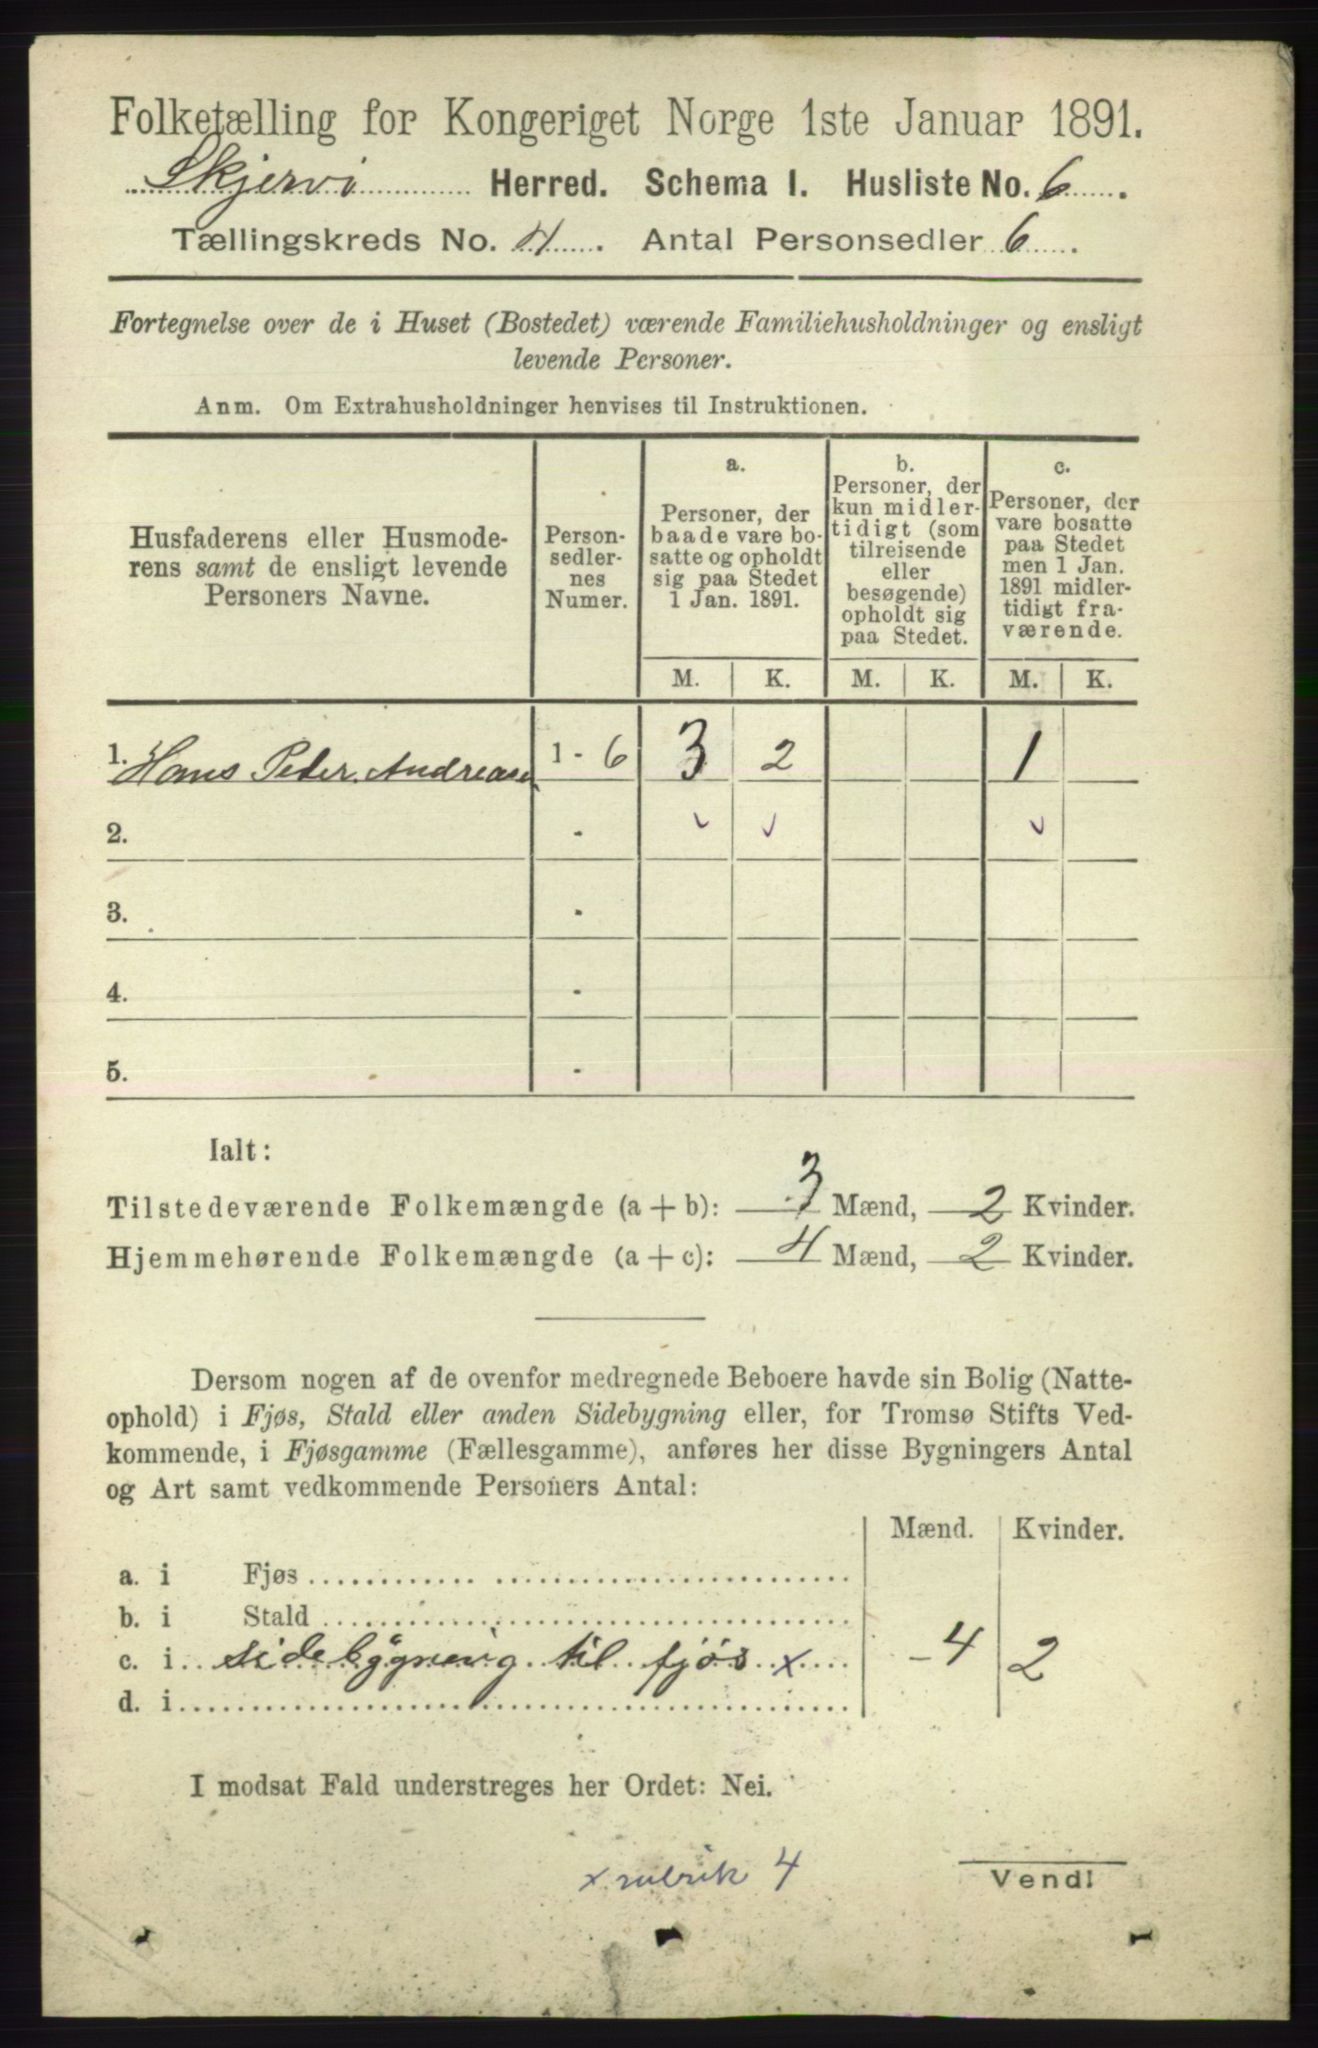 Folketælling for Kongeriget Norge 1ste Januar 1891.
Skjervö Herred. Schema I. Husliste No. 6.
Tællingskreds No. 4. Antal Personsedler 6.
Fortegnelse over de i Huset (Bostedet) værende Familiehusholdninger og ensligt
levende Personer.
Anm. Om Extrahusholdninger henvises til Instruktionen.
Husfaderens eller Husmode-
rens samt de ensligt levende
Personers Navne.
Person-
sedler-
nes
Numer.
a.
Personer, der
baade vare bo-
satte og opholdt
sig paa Stedet
1 Jan. 1891.
b.
Personer, der
kun midler-
tidigt (som
tilreisende
eller
besøgende)
opholdt sig
paa Stedet.
c.
Personer, der
vare bosatte
paa Stedet
men 1 Jan.
1891 midler-
tidigt fra-
værende.
M. K. M. K. M. K.
1. Hans Peder Andreasen 1 - 6 3 2 1
2. -
3. -
4. -
5. -
Ialt:
Tilstedeværende Folkemængde (a + b): 3 Mænd, 2 Kvinder.
Hjemmehørende Folkemængde (a + c): 4 Mænd, 2 Kvinder.
Dersom nogen af de ovenfor medregnede Beboere havde sin Bolig (Natte-
ophold) i Fjøs, Stald eller anden Sidebygning eller, for Tromsø Stifts Ved-
kommende, i Fjøsgamme (Fællesgamme), anføres her disse Bygningers Antal
og Art samt vedkommende Personers Antal:
Mænd. Kvinder.
a. i Fjøs
b. i Stald
c. i sidebygning til fjøs x - 4 2
d. i
I modsat Fald understreges her Ordet: Nei.
x rubrik 4
Vend!